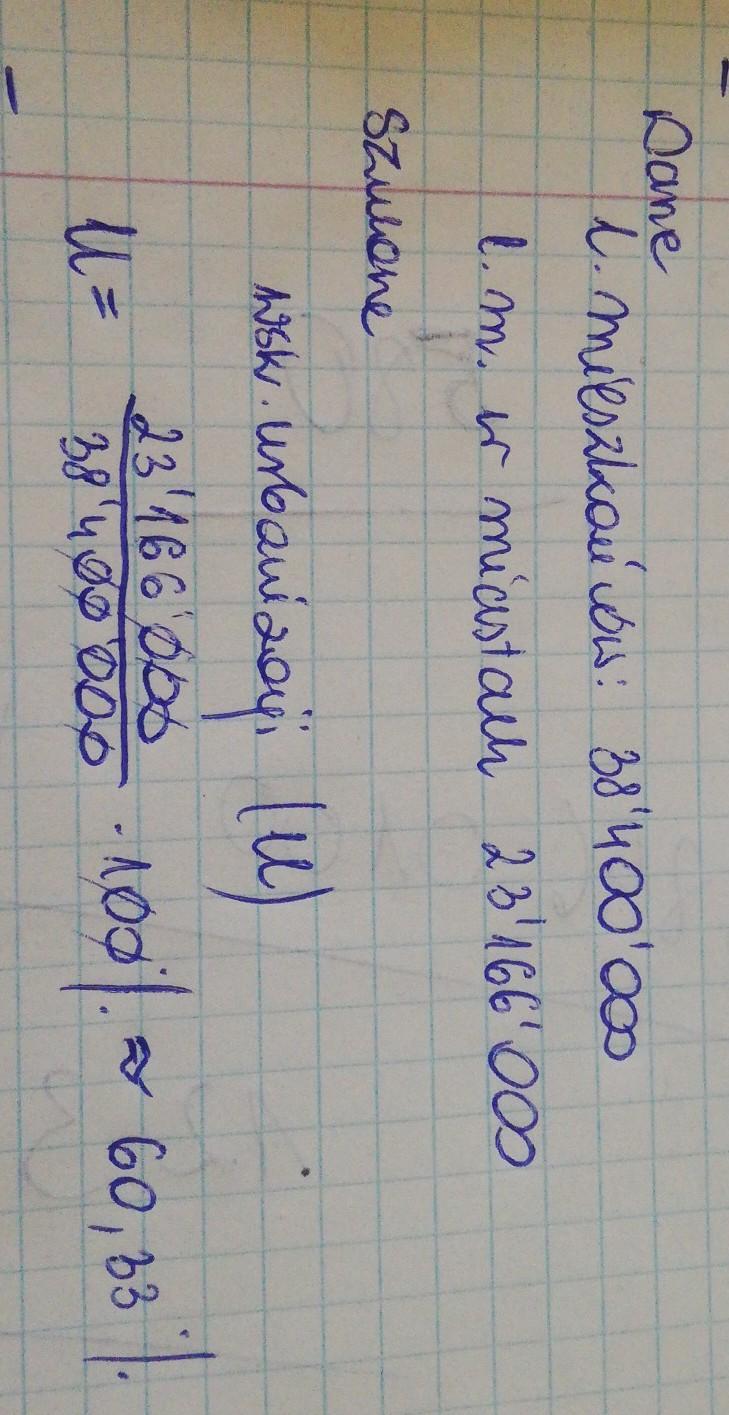 Dane
l. mieszkańców: 38'400'000
l. m. w miastach 23'166'000
Szukane
wsk. urbanizacji (U)
U = 23'166'000 / 38'400'000 · 100% ≈ 60,33%